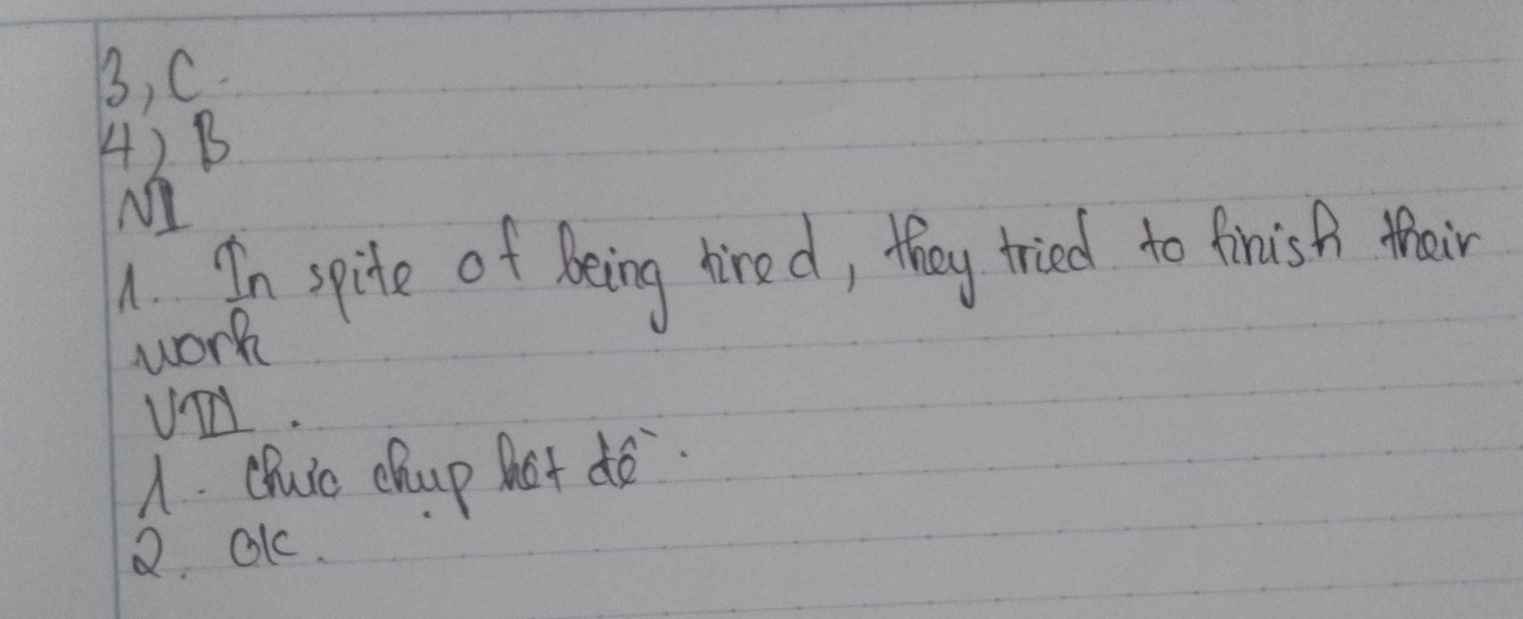 3, C.
4) B
VI
1. In spite of being tired, they tried to finish their
work
VIII.
1. chưa chụp hết đề.
2. Ok.